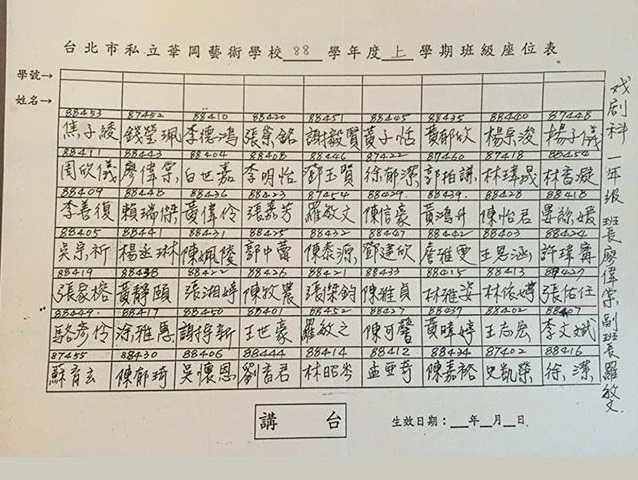 台北市私立華岡藝術學校 88 學年度 上 學期班級座位表
學號→
姓名→
88453 87452 88410 88420 88451 88445 88435 88440 87448
焦子綾 錢瑩珮 李德鴻 張景銘 謝毅賢 黃子恬 黃郁欣 楊宗浚 楊子儀
88411 88443 88404 88408 88446 87422 87460 87418 88454
周欣儀 廖偉棠 白世嘉 李明怡 鄧玉賢 徐郁潔 郭柏謙 林瑋晟 林香凝
88409 88448 88436 88423 87454 88429 88439 88428 88418
李善復 賴瑞傑 黃偉伶 張嘉芳 羅敏文 陳信豪 黃鴻升 陳怡君
88405 88441 88431 88432 88447 88442 88403 88424
吳宗祈 楊丞琳 陳姵陵 郭中蕾 陳泰源 鄧建欣 詹雅雯 王思涵 許瑋甯
88419 88438 88422 88426 88421 88433 88415 88413 88427
張家榕 黃靜頤 張湘婷 陳牧農 張傑鈞 陳雅貞 林雅姿 林依婷 張佑任
88449 88417 88450 88401 88452 88427 88437 88402 88407
駱彥伶 涂雅惠 謝侑新 王世豪 羅敏之 陳可馨 黃暐婷 王志宏 李文斌
87455 88430 88406 88444 88414 88412 88434 87402 88416
蘇育玄 陳郁琦 吳懷恩 劉音君 林昭岑 孟亞奇 陳嘉裕 史凱榮 徐潔
講台
生效日期：__年__月__日
戏剧科 一年級 班長廖偉棠 副班長羅敏文